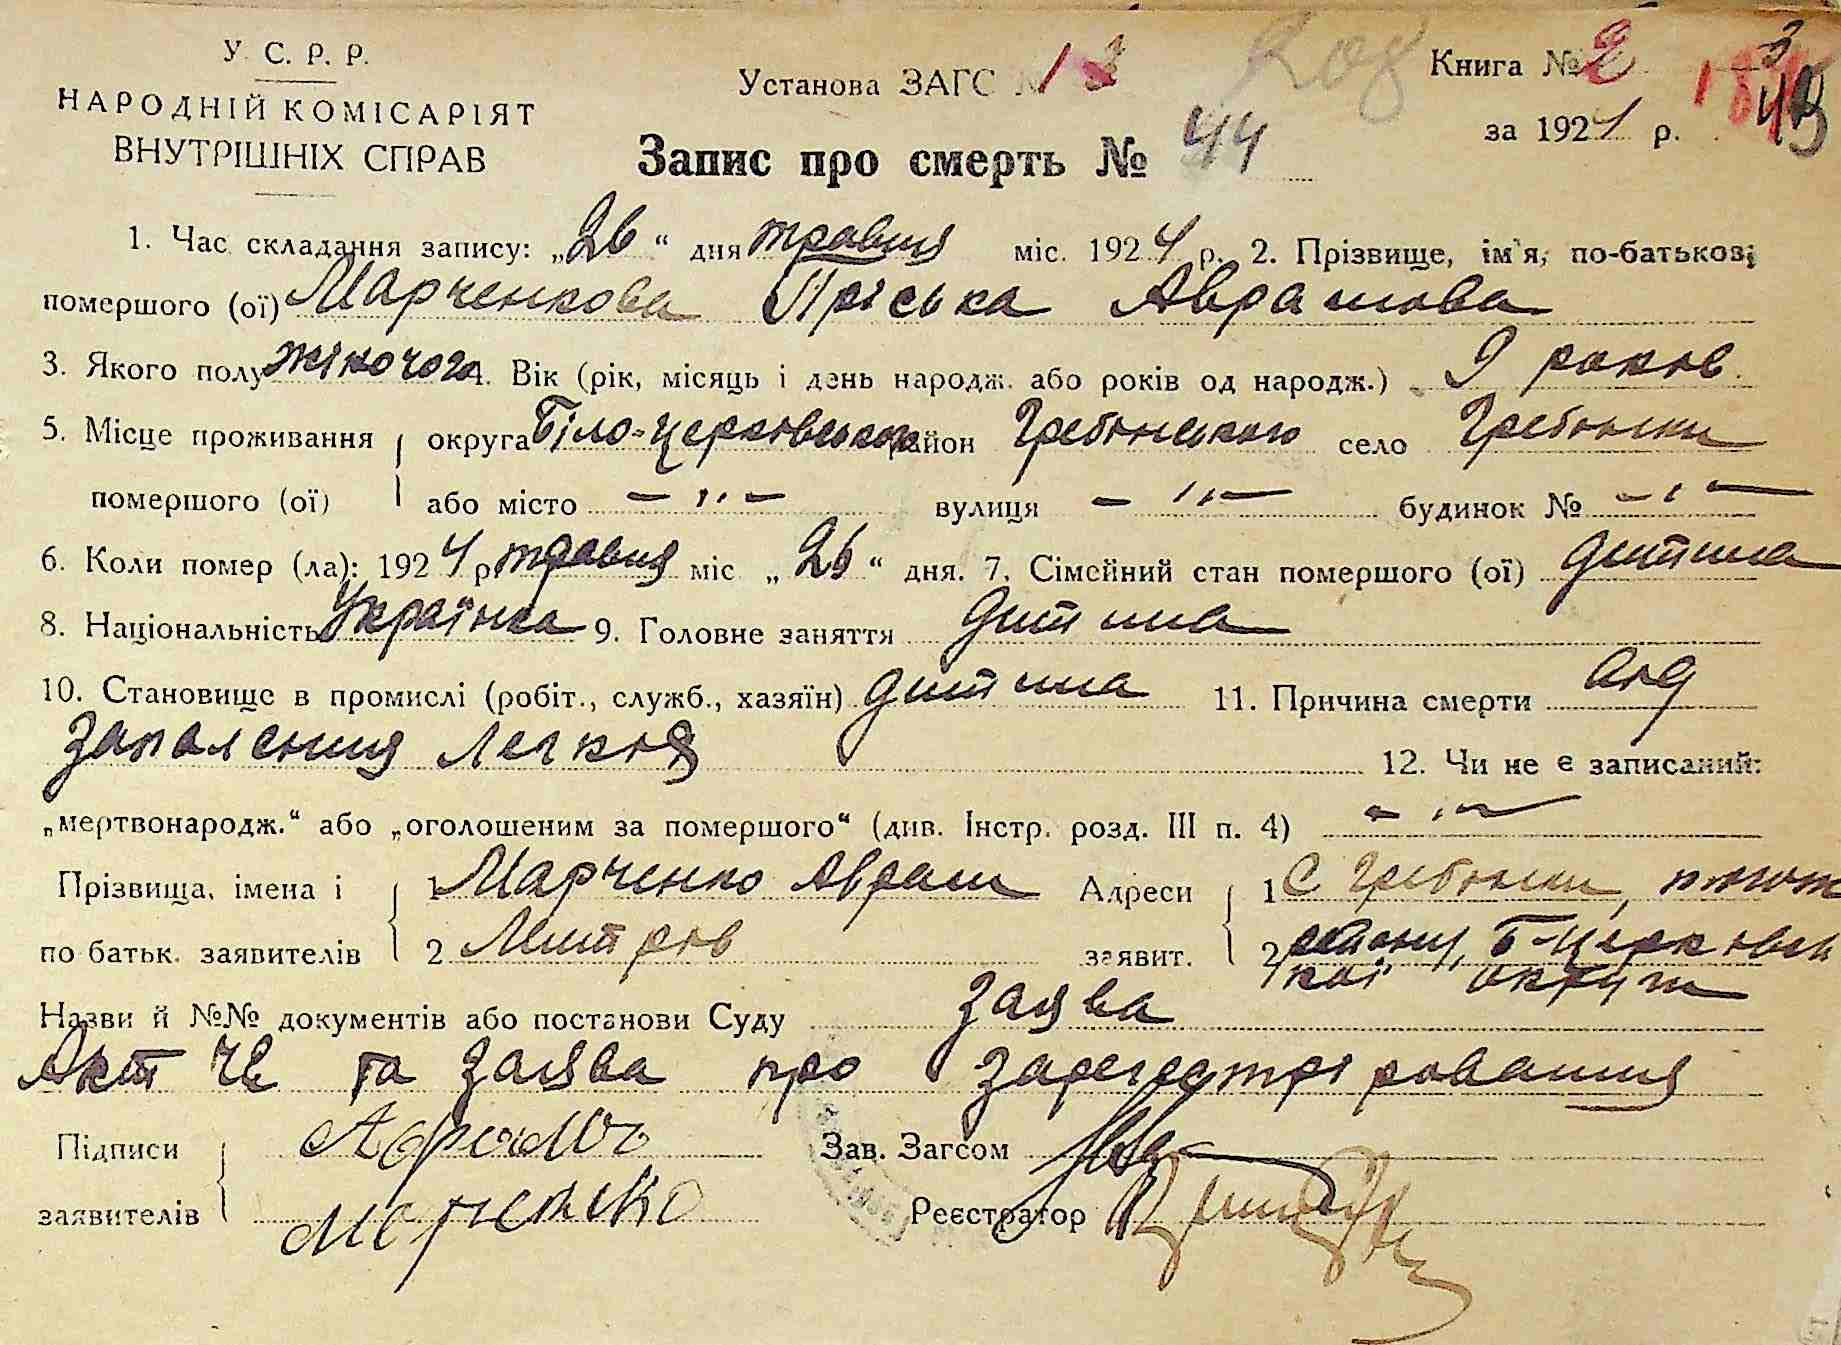 У. С. Р. Р.
НАРОДНІЙ КОМІСАРІЯТ
ВНУТРІШНІХ СПРАВ
Установа ЗАГС № 13
Книга № 2
за 1924 р.
Запис про смерть № 44
1. Час складання запису: „26“ дня травня міс. 1924 р. 2. Прізвище, ім'я, по-батькові
помершого (ої) Марченкова Пріська Аврамова
3. Якого полу жіночого 4. Вік (рік, місяць і день народж. або років од народж.) 9 років
5. Місце проживання округа Біло-Церковського район Гребінського село Гребінки
помершого (ої) або місто — " — вулиця — " — будинок № — " —
6. Коли помер (ла): 1924 р. травня міс „26“ дня. 7. Сімейний стан помершого (ої) дитина
8. Національність Українка 9. Головне заняття дитина
10. Становище в промислі (робіт., служб., хазяїн) дитина 11. Причина смерти від
запалення легків
12. Чи не є записаний:
„мертвонародж.“ або „оголошеним за помершого“ (див. Інстр. розд. III п. 4) — " —
Прізвища, імена і 1 Марченко Аврам Адреси 1 С Гребінки,
по батьк. заявителів 2 Митров заявит. 2 району, Б-Церківсь
кої округи
Назви й №№ документів або постанови Суду заява
Акт ЧК та заява про зарегістрірования
Підписи Аврам Зав. Загсом
заявителів Марченко Реєстратор